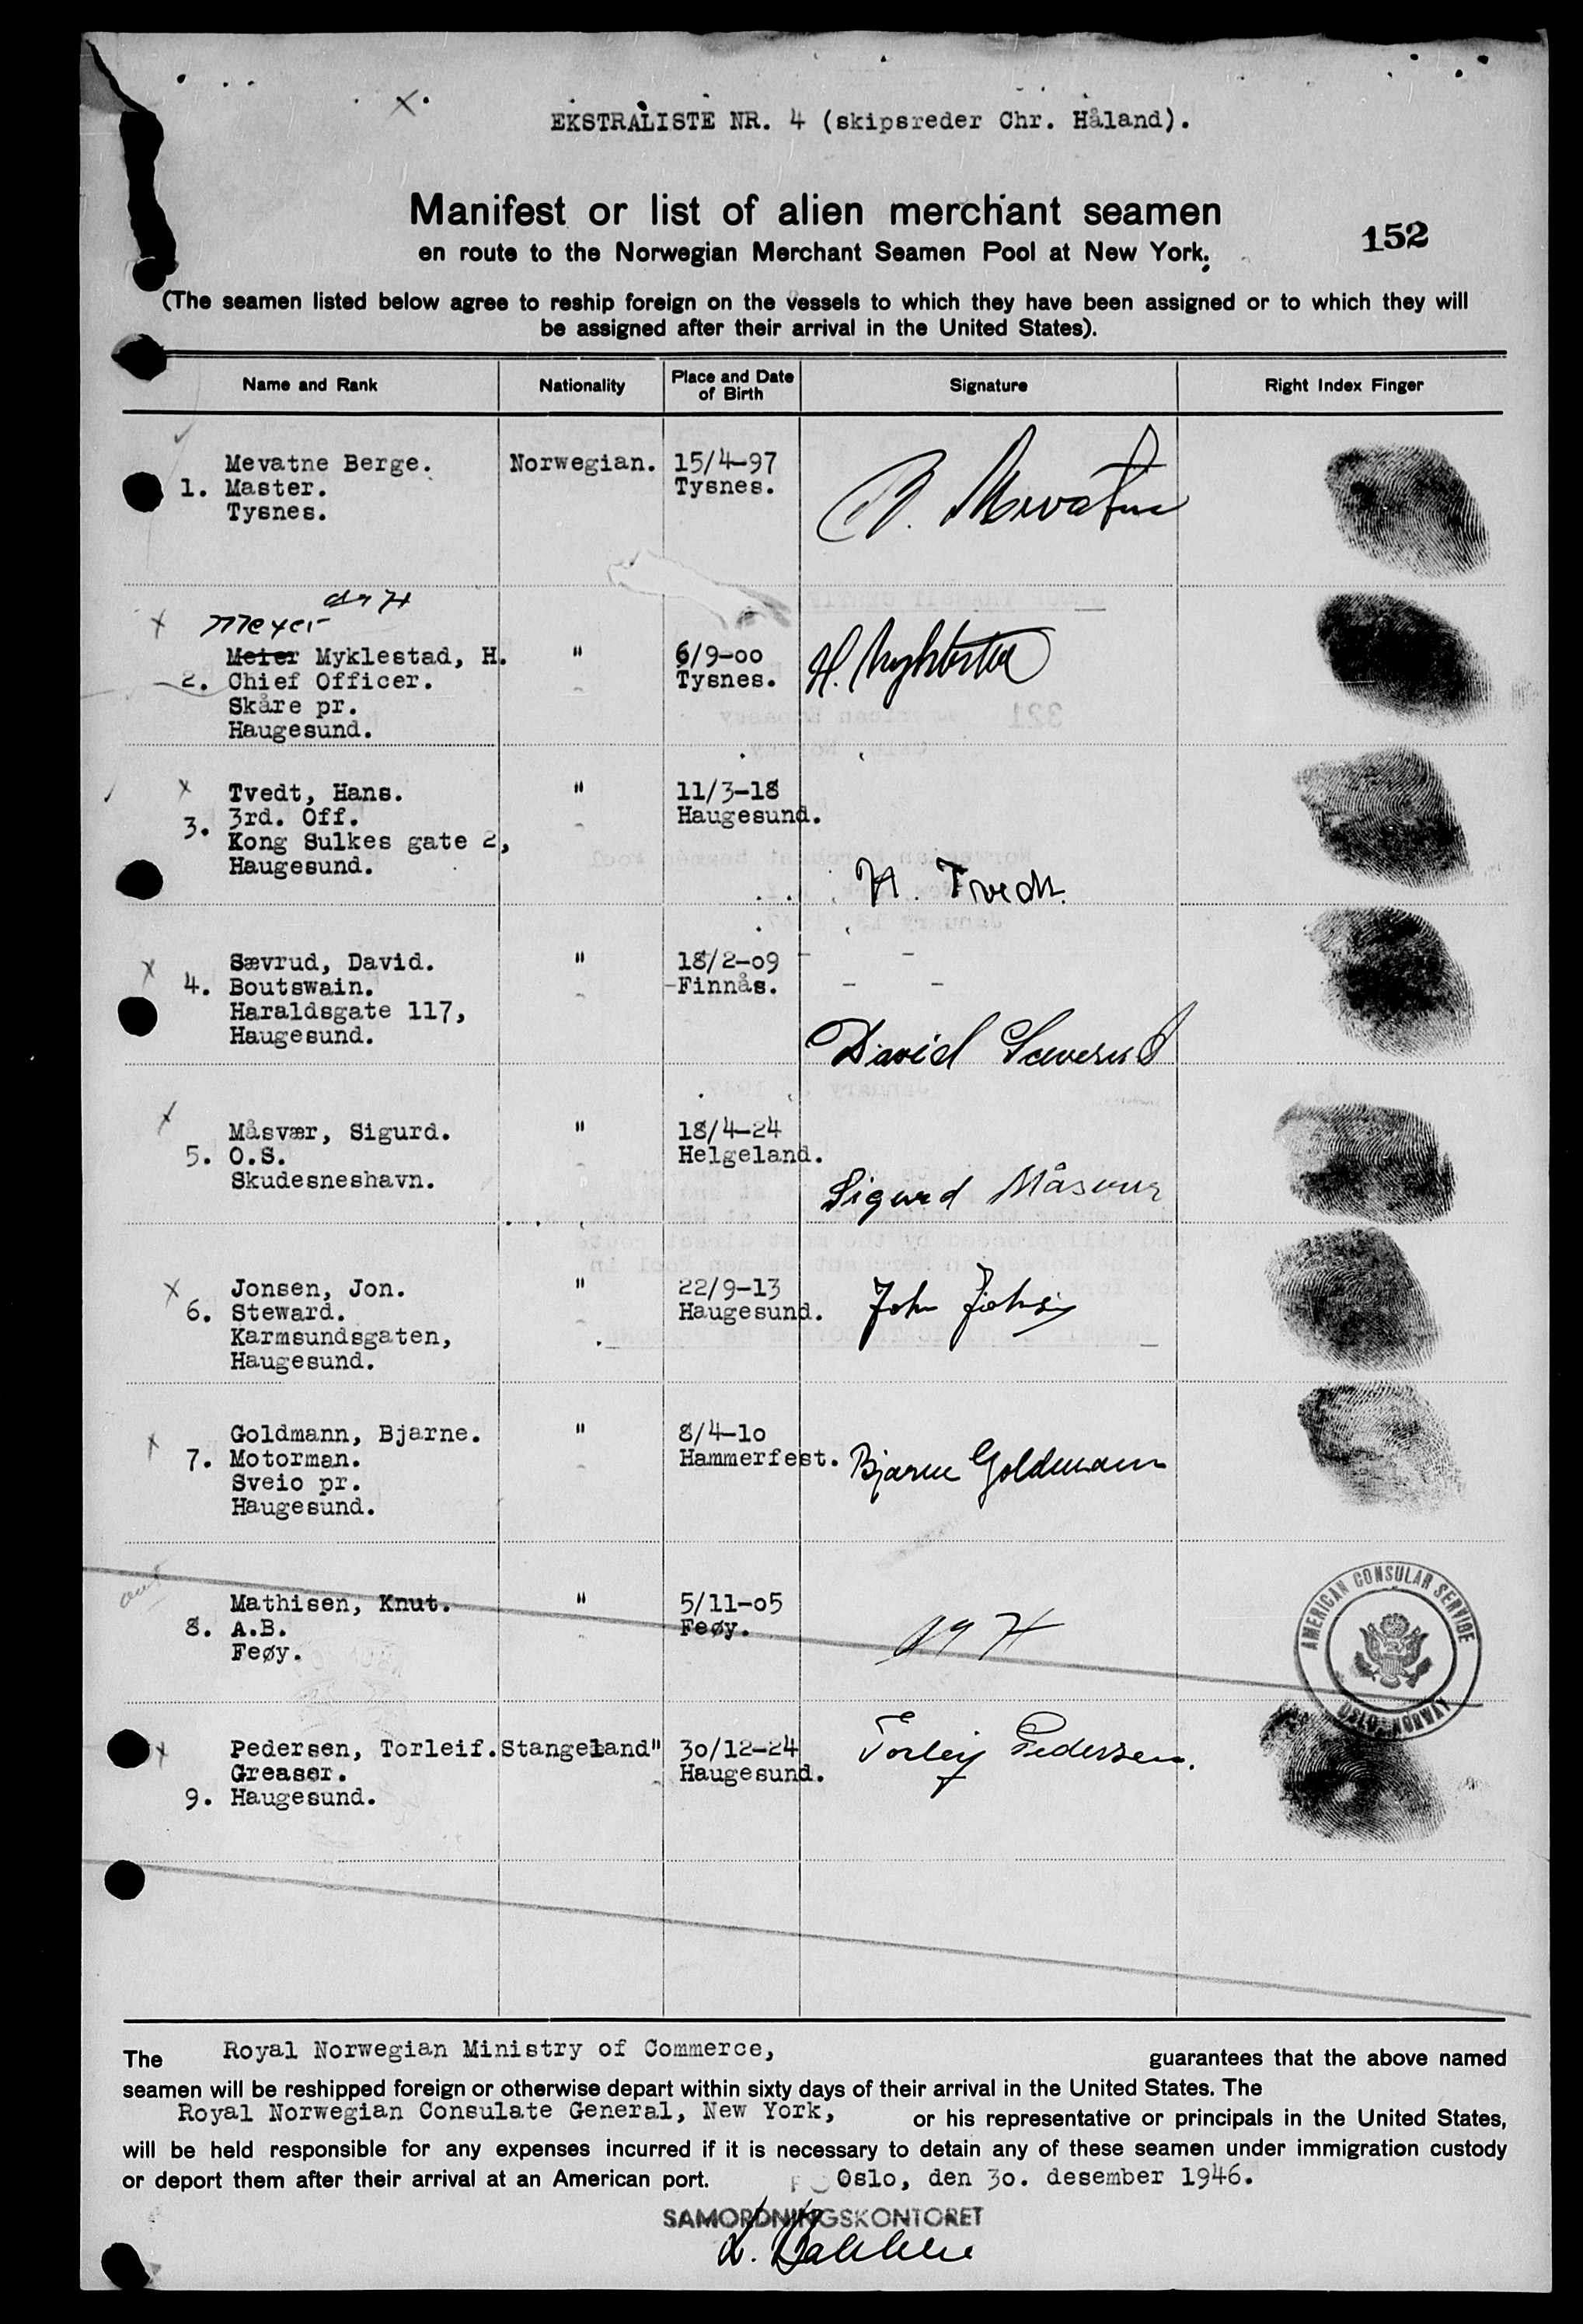 EKSTRALISTE NR. 4 (skipsreder Chr. Håland).
Manifest or list of alien merchant seamen
en route to the Norwegian Merchant Seamen Pool at New York.
152
(The seamen listed below agree to reship foreign on the vessels to which they have been assigned or to which they will
be assigned after their arrival in the United States).
Name and Rank Nationality Place and Date of Birth Signature Right Index Finger
Mevatne Berge. Norwegian. 15/4-97
1. Master. Tysnes. B. Mevatne
Tysnes.
Meyer
Meier Myklestad, H. " 6/9-00 H. Myklestad
2. Chief Officer. Tysnes.
Skåre pr.
Haugesund.
Tvedt, Hans. " 11/3-18
3. 3rd. Off. Haugesund.
Kong Sulkes gate 2,
Haugesund.
H. Tvedt.
Sævrud, David. " 18/2-09
4. Boutswain. Finnås.
Haraldsgate 117,
Haugesund.
David Sæverud
Måsvær, Sigurd. " 18/4-24
5. O.S. Helgeland.
Skudesneshavn. Sigurd Måsvær
Jonsen, Jon. " 22/9-13
6. Steward. Haugesund. John Johnsen
Karmsundsgaten,
Haugesund.
Goldmann, Bjarne. " 8/4-10
7. Motorman. Hammerfest. Bjarne Goldmann
Sveio pr.
Haugesund.
out
Mathisen, Knut. " 5/11-05
8. A.B. Feøy.
Feøy.
AMERICAN CONSULAR SERVICE
OSLO, NORWAY
Pedersen, Torleif. Stangeland" 30/12-24 Torleif Pedersen.
Greaser. Haugesund.
9. Haugesund.
The Royal Norwegian Ministry of Commerce, guarantees that the above named
seamen will be reshipped foreign or otherwise depart within sixty days of their arrival in the United States. The
Royal Norwegian Consulate General, New York, or his representative or principals in the United States,
will be held responsible for any expenses incurred if it is necessary to detain any of these seamen under immigration custody
or deport them after their arrival at an American port. Oslo, den 30. desember 1946.
SAMORDNINGSKONTORET